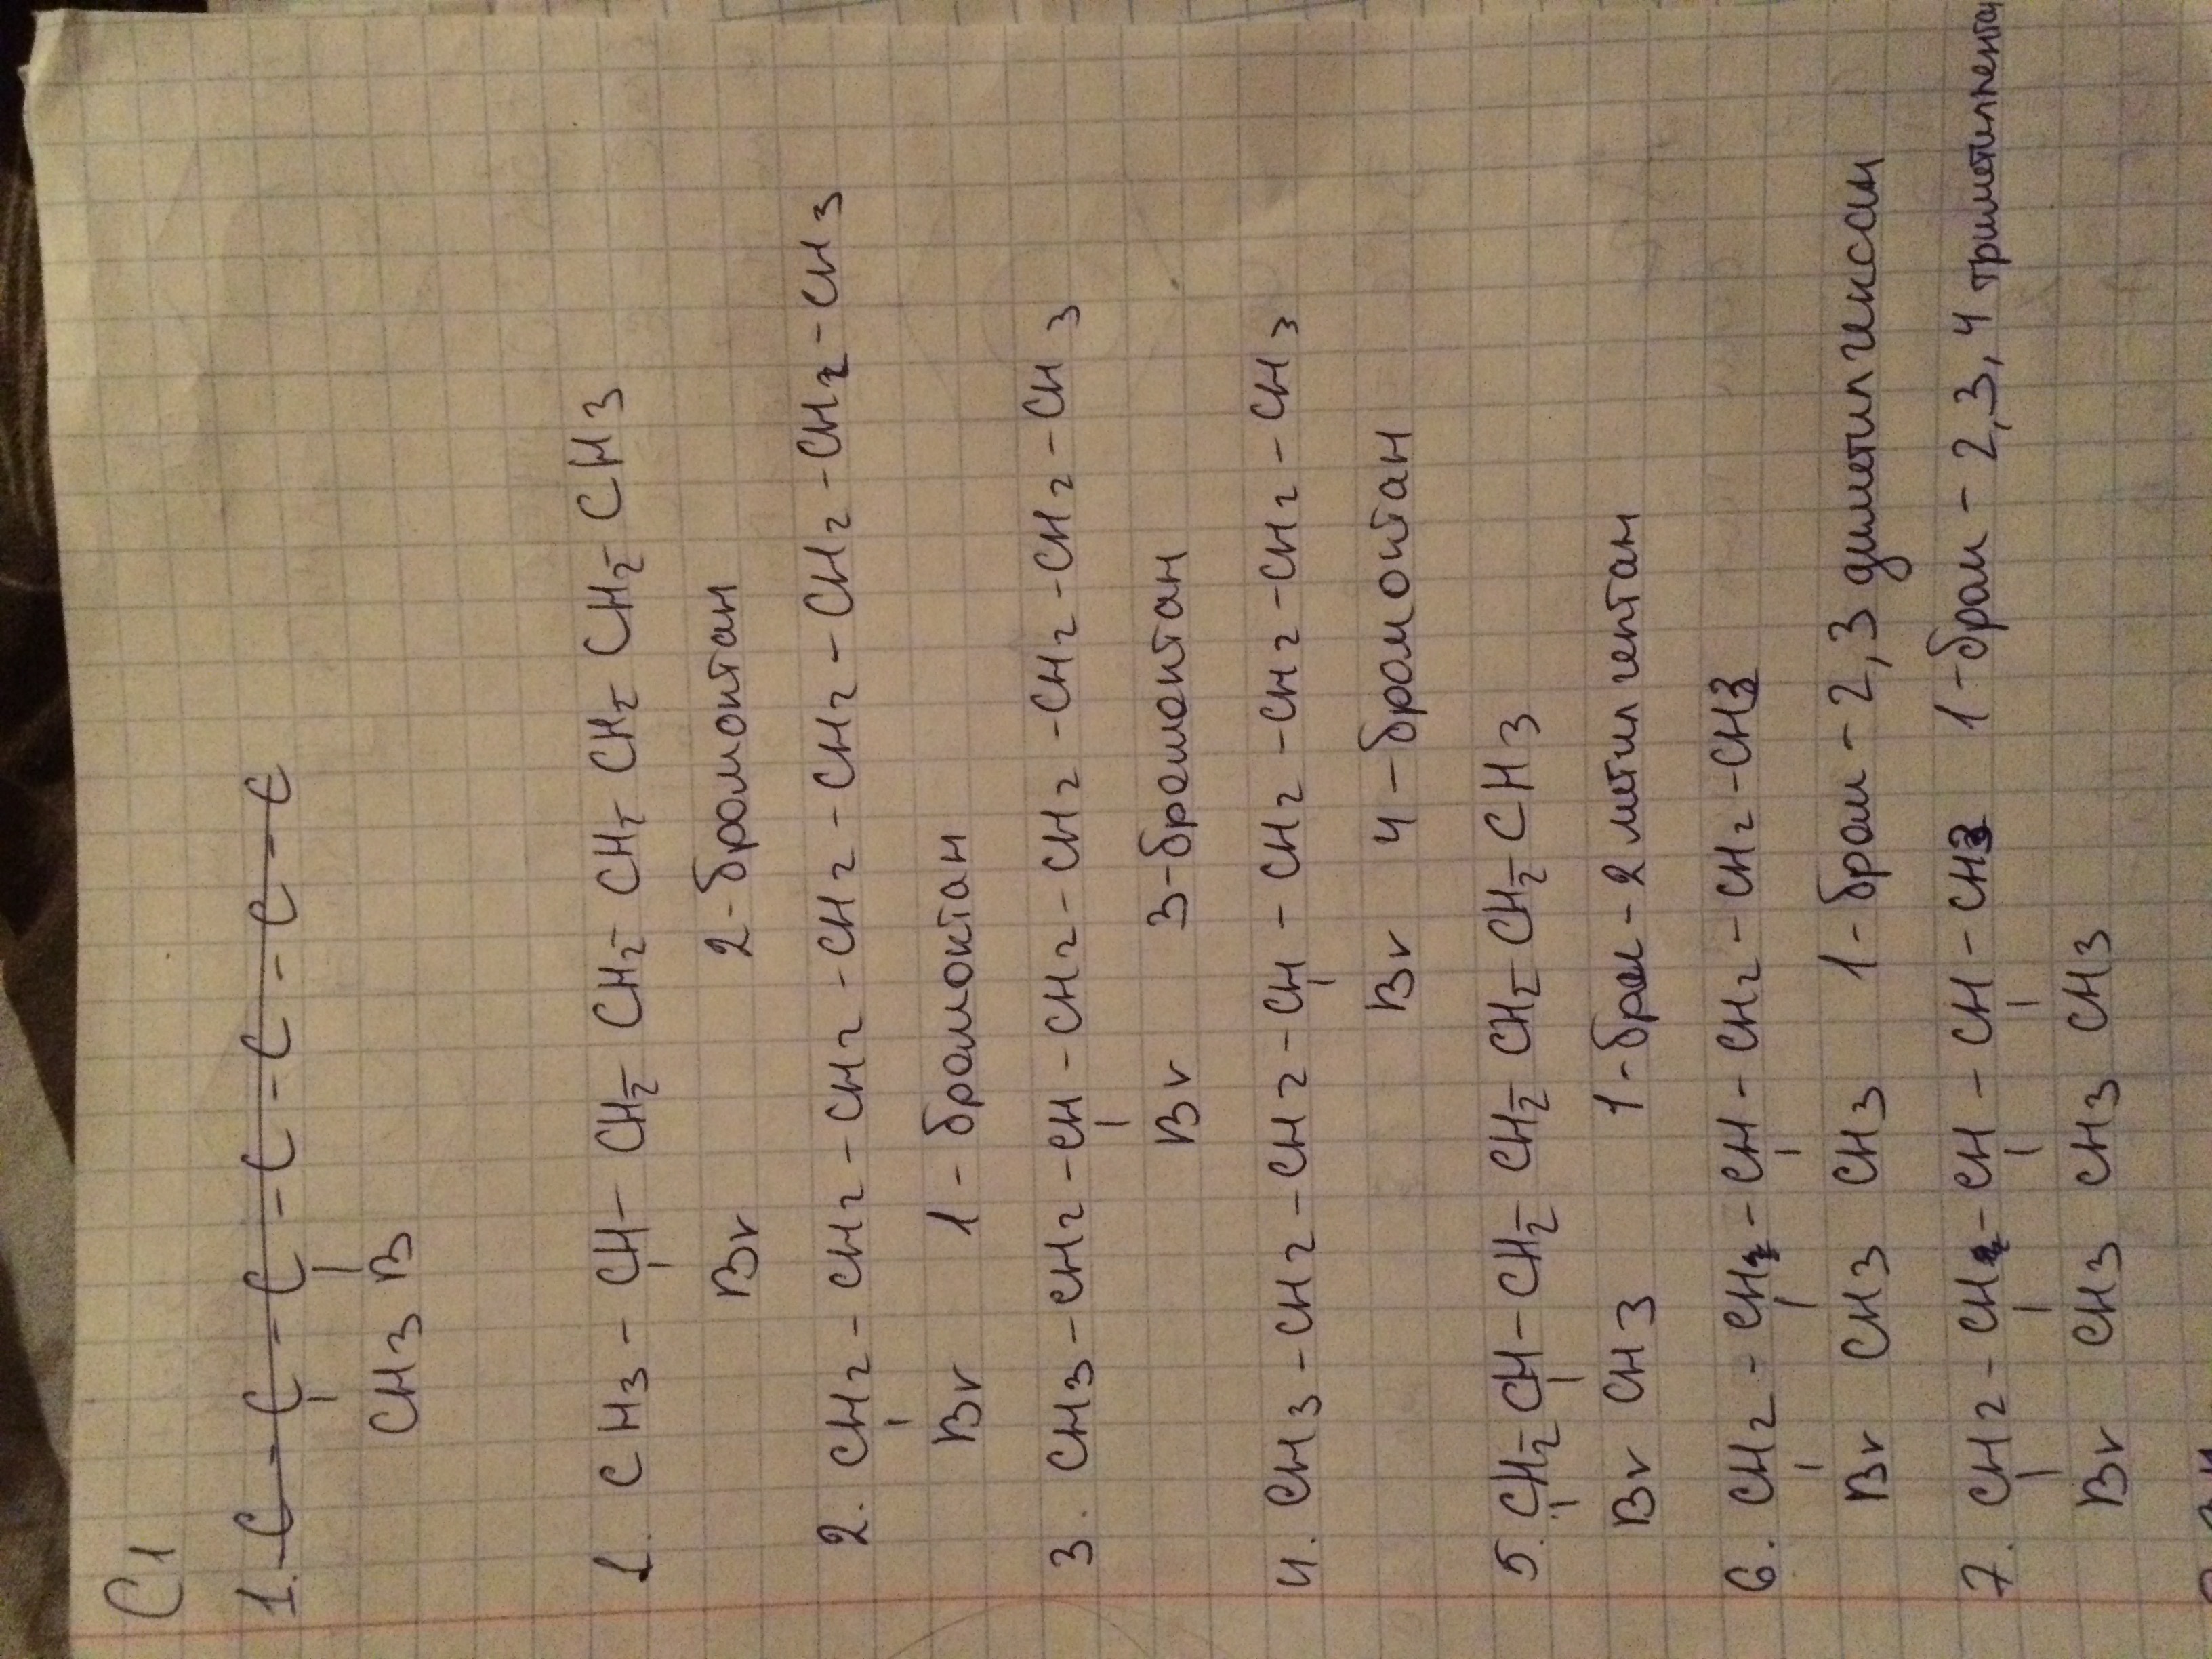 C1
1. C - C - C - C - C - C - C
CH3 B
1. CH3 - CH - CH2 - CH2 - CH2 - CH2 - CH2 - CH3
Br 2-бромоктан
2. CH2 - CH2 - CH2 - CH2 - CH2 - CH2 - CH2 - CH3
Br 1 - бромоктан
3. CH3 - CH2 - CH - CH2 - CH2 - CH2 - CH2 - CH3
Br 3-бромоктан
4. CH3 - CH2 - CH2 - CH - CH2 - CH2 - CH2 - CH3
Br 4-бромоктан
5. CH2 - CH - CH2 - CH2 - CH2 - CH2 - CH3
Br CH3 1-бром-2 метил гептан
6. CH2 - CH - CH - CH2 - CH2 - CH3
Br CH3 CH3 1-бром-2,3 диметил гексан
7. CH2 - CH - CH - CH - CH3 1-бром-2,3,4 триметилпента
Br CH3 CH3 CH3